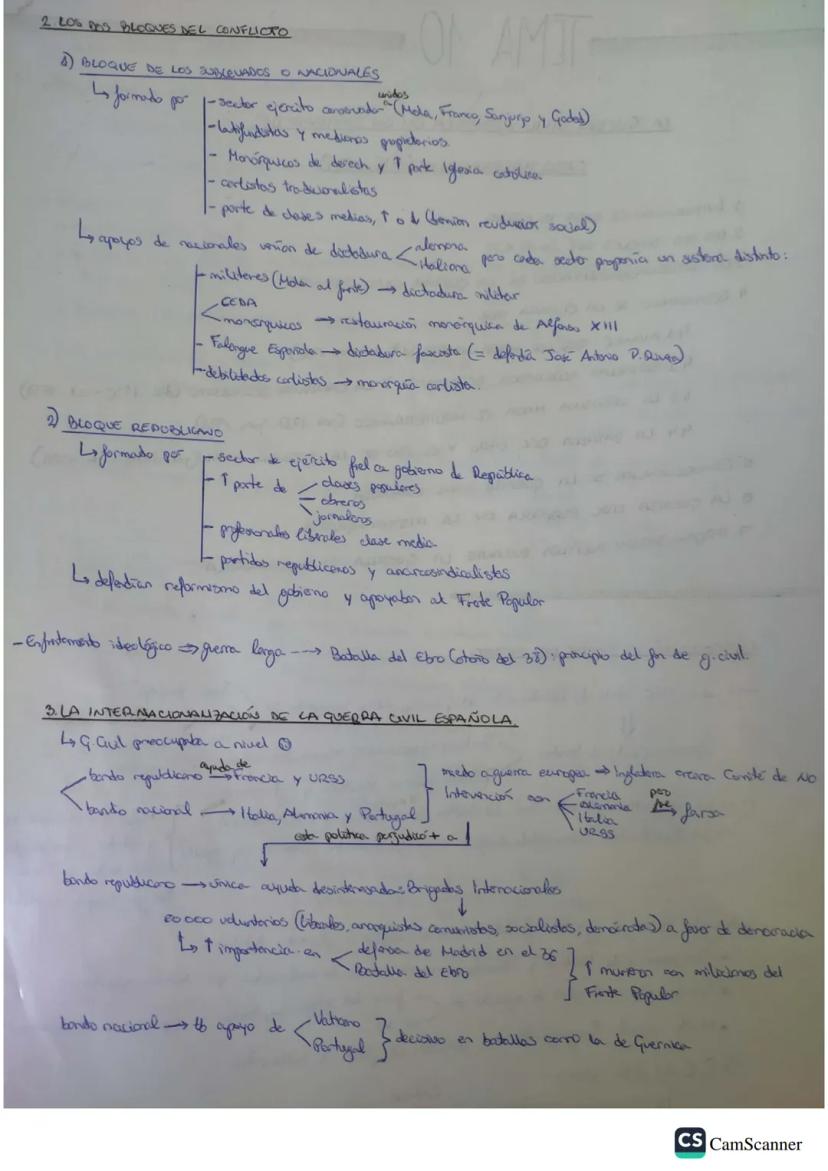 2. LOS DOS BLOQUES DEL CONFLICTO
1) BLOQUE DE LOS SUBLEVADOS O NACIONALES
↳ formado por
unidos
- sector ejército conservador a (Mola, Franco, Sanjurjo y Goded)
- latifundistas y medianos propietarios
- Monárquicos de derech y ↑ parte Iglesia católica
- carlistas tradicionalistas
- parte de clases medias, ↑ o ↓ (temían revolución social)
↳ apoyos de nacionales venían de dictadura < alemana
italiana
pero cada sector proponía un sistema distinto:
- militares (Mola al frente) → dictadura militar
CEDA
< monárquicos → restauración monárquica de Alfonso XIII
- Falange Española → dictadura fascista (= defendía José Antonio P. Rivera)
- debilitados carlistas → monarquía carlista.
2) BLOQUE REPUBLICANO
↳ formado por
- sector de ejército fiel a gobierno de República
- ↑ parte de
clases populares
obreros
jornaleros
- profesionales liberales clase media
- partidos republicanos y anarcosindicalistas
↳ defendían reformismo del gobierno y apoyaban al Frente Popular
- Enfrentamiento ideológico ⇒ guerra larga ---> Batalla del Ebro (otoño del 38): principio del fin de g. civil.
3. LA INTERNACIONALIZACIÓN DE LA GUERRA CIVIL ESPAÑOLA.
↳ G. Civil preocupaba a nivel
bando republicano → ayuda de Francia y URSS
bando nacional → Italia, Alemania y Portugal
miedo a guerra europea ⇒ Inglaterra creara Comité de NO
Intervención con
Francia
Alemania
Italia
URSS
pero
farsa
esta política perjudicó + a
bando republicano → única ayuda desinteresada: Brigadas Internacionales
60 000 voluntarios (liberales, anarquistas comunistas, socialistas, demócratas) a favor de democracia
↳ ↑ importancia en < defensa de Madrid en el 36
Batalla del Ebro
↑ murieron con milicianos del
Frente Popular
bando nacional → tb apoyo de < Vaticano
Portugal
} decisivo en batallas como la de Guernica
CS CamScanner